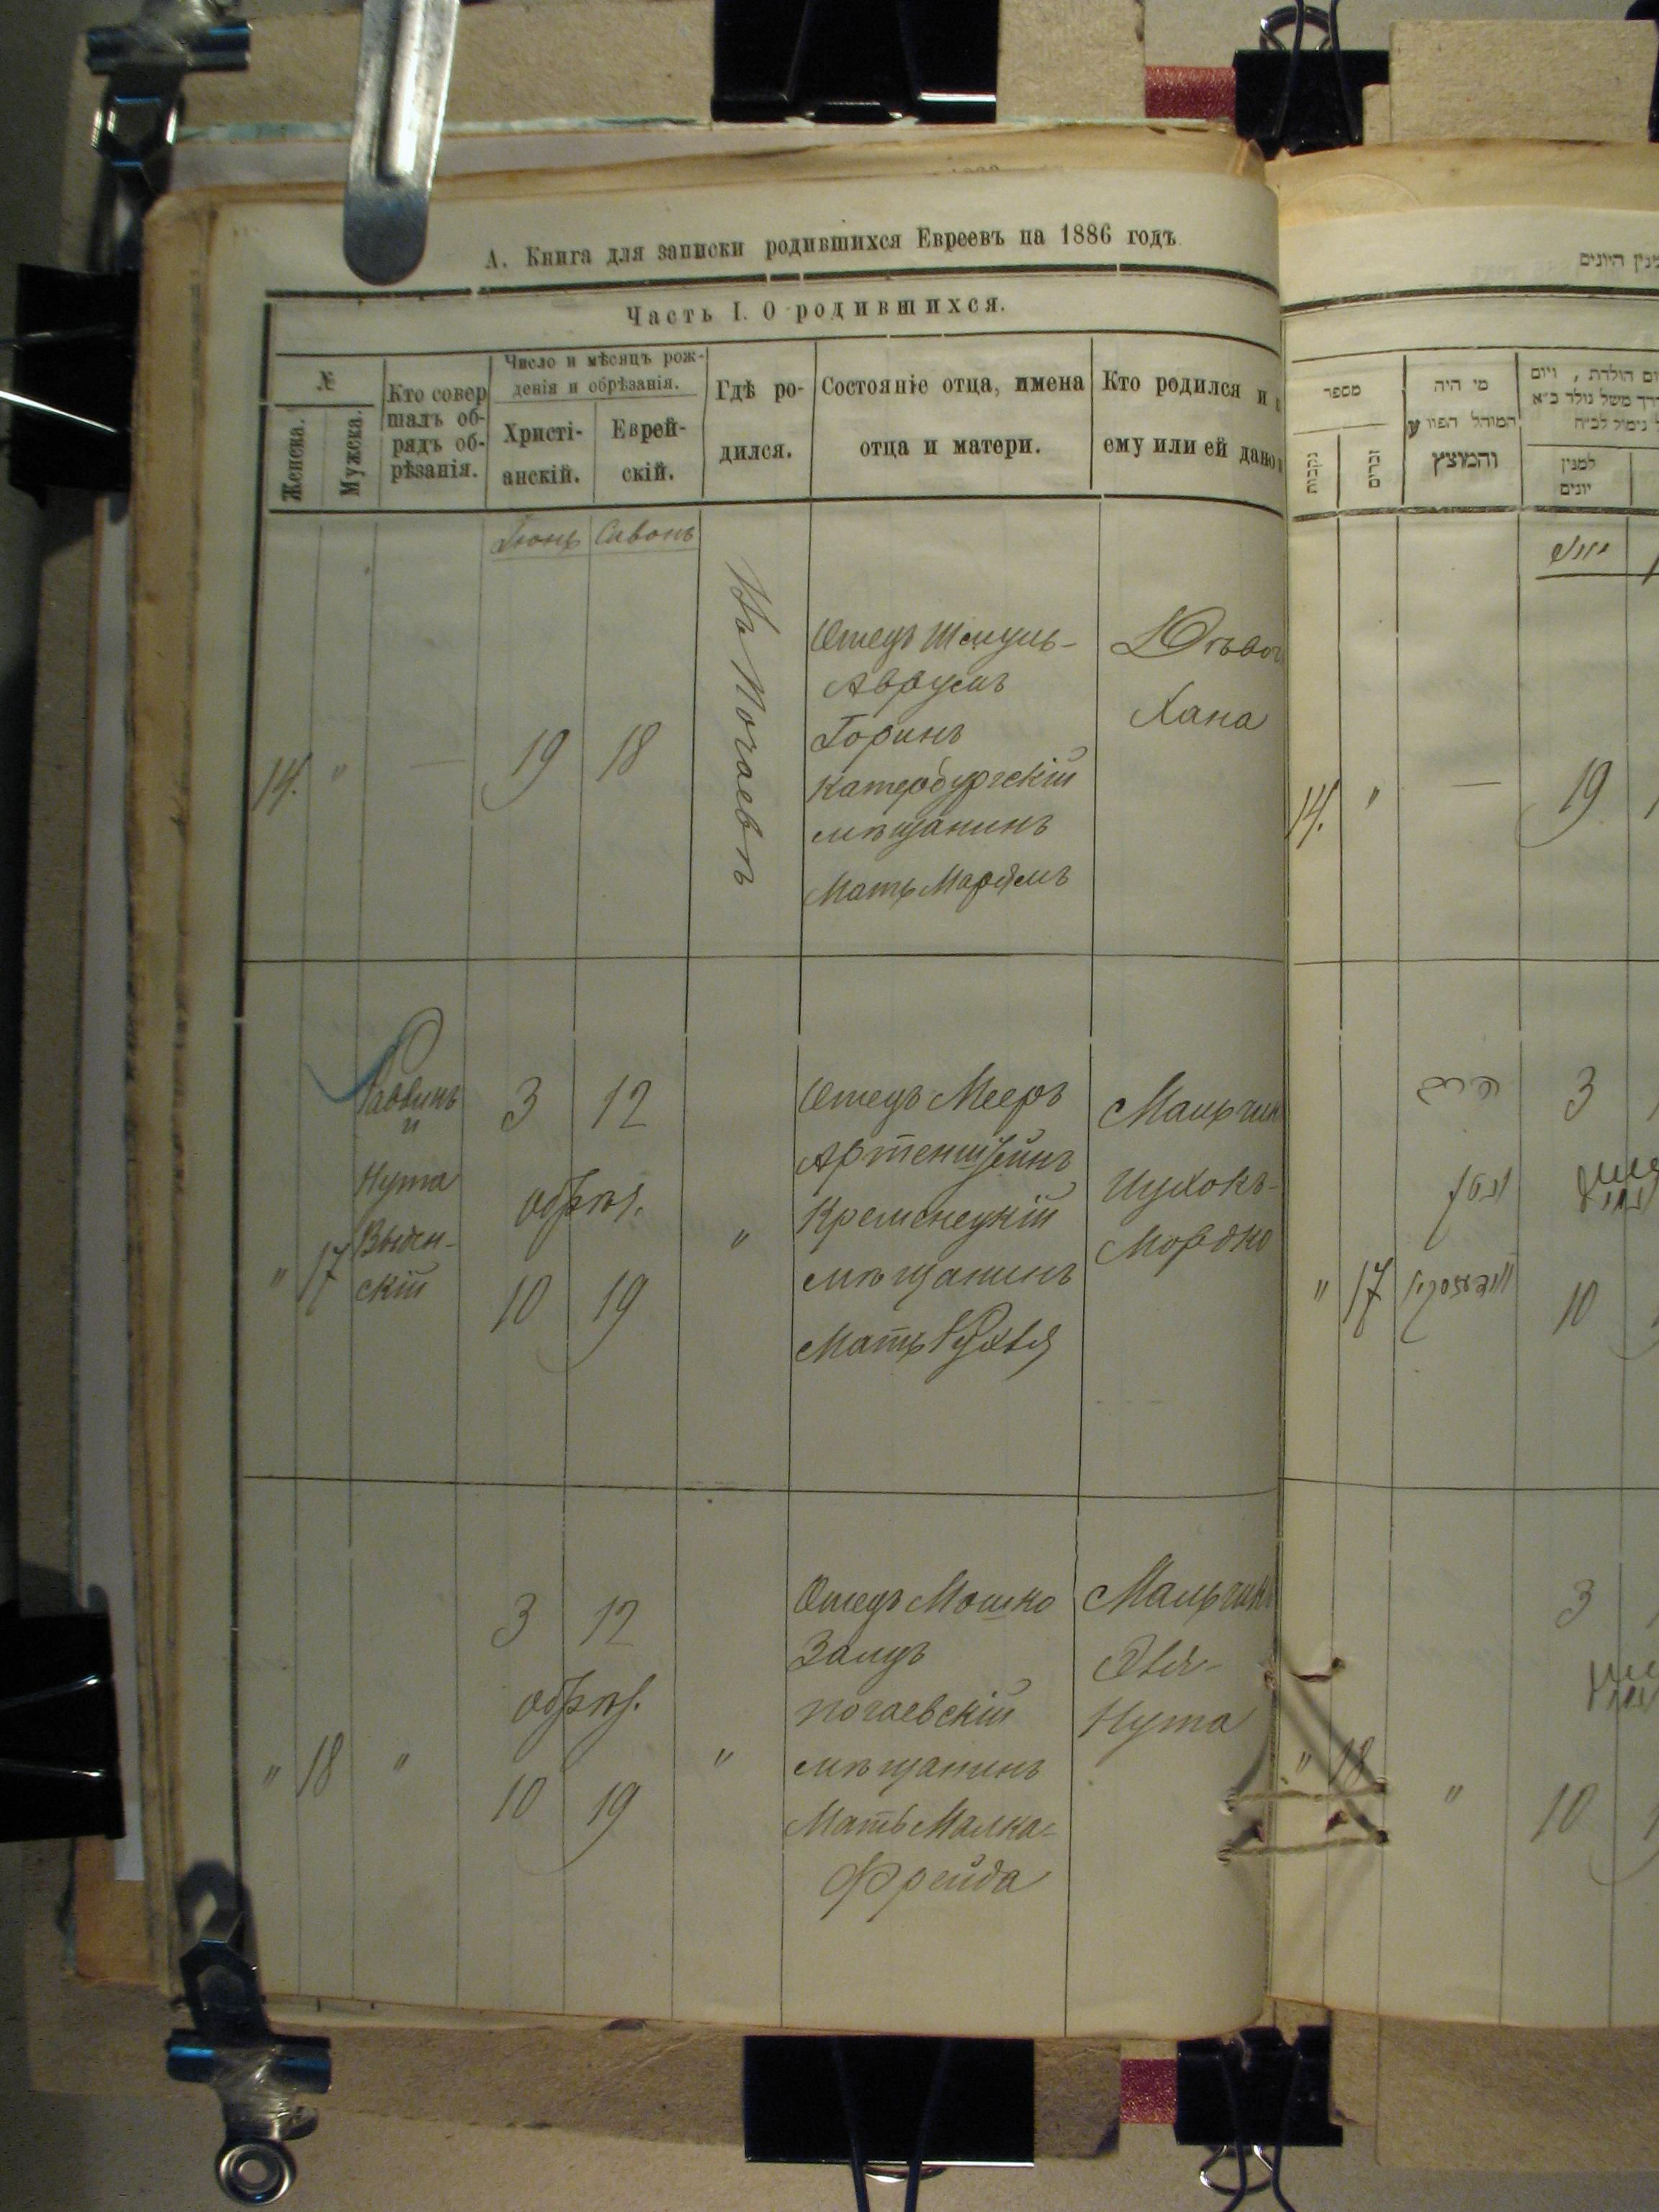 А. Книга для записки родившихся Евреевъ на 1886 годъ
Часть I. О родившихся.
№
Женска.
Мужска.
Кто совер
шалъ об-
рядъ об-
рѣзанія.
Число и мѣсяцъ рож-
денія и обрѣзанія.
Христі-
анскій.
Еврей-
скій.
Гдѣ ро-
дился.
Состояніе отца, имена
отца и матери.
Кто родился и
ему или ей дано
Іюнь Сивонъ
14. " — 19 18
Въ Почаевѣ
Отецъ Шмуль-
Аврумъ
Горинъ
Катербургскій
мѣщанинъ
Мать Марьямъ
Дѣвоч
Хана
" 17
Раввинъ
и
Нута
Выден-
скій
3 12
обрѣз.
10 19
"
Отецъ Мееръ
Артенштейнъ
Кременецкій
мѣщанинъ
Мать Рухля
Мальчик
Ицхокъ-
Мордко
" 18 "
3 12
обрѣз.
10 19
"
Отецъ Мошко
Залцъ
почаевскій
мѣщанинъ
Мать Малка-
Фрейда
Мальчикъ
Нута
מספר
נקבות
זכרים
מי היה
המוהל הפורע
והמוצץ
למנין
יונים
14. " — 19
" 17
הרב
3
10
" 18 "
3
10